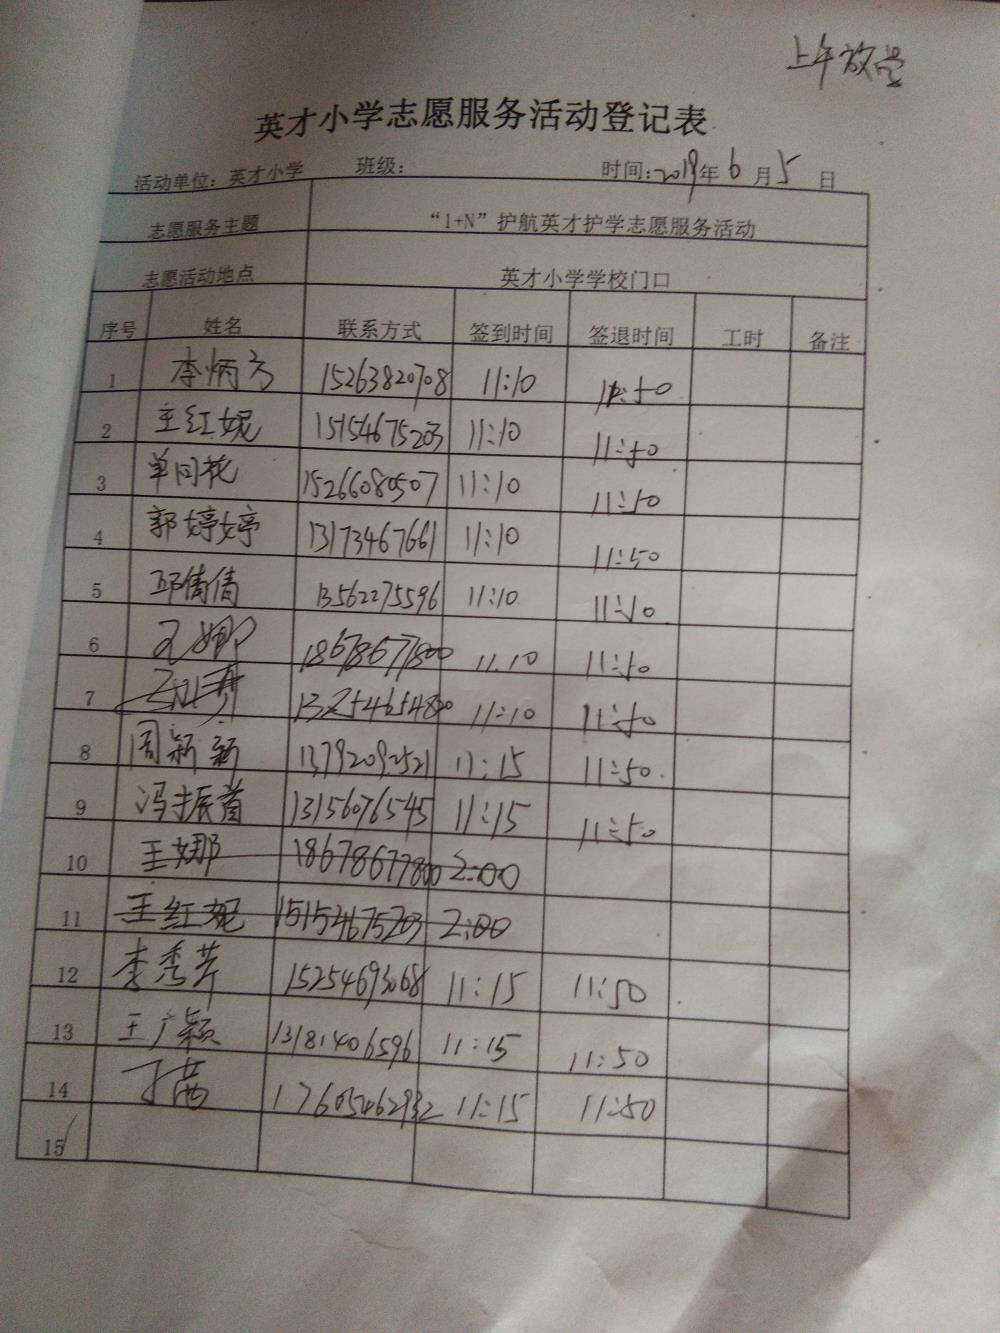 上午放学
英才小学志愿服务活动登记表
活动单位：英才小学 班级： 时间：2019年6月5日
志愿服务主题 “1+N”护航英才护学志愿服务活动
志愿活动地点 英才小学学校门口
序号 姓名 联系方式 签到时间 签退时间 工时 备注
1 李炳 15263820708 11:10 11:50
2 王红妮 15154675203 11:10 11:50
3 单同花 15266080507 11:10 11:50
4 郭婷婷 13173467661 11:10 11:50
5 邱倩倩 13562275596 11:10 11:50
6 王娜 18678677800 11:10 11:50
7 13254654800 11:10 11:50
8 周新新 13792092521 11:15 11:50
9 冯振首 13156076545 11:15 11:50
10 王娜 18678677800 2:00
11 王红妮 15154675203 2:00
12 李秀芹 15254693068 11:15 11:50
13 王广颖 13181406596 11:15 11:50
14 丁茜 17605462932 11:15 11:50
15